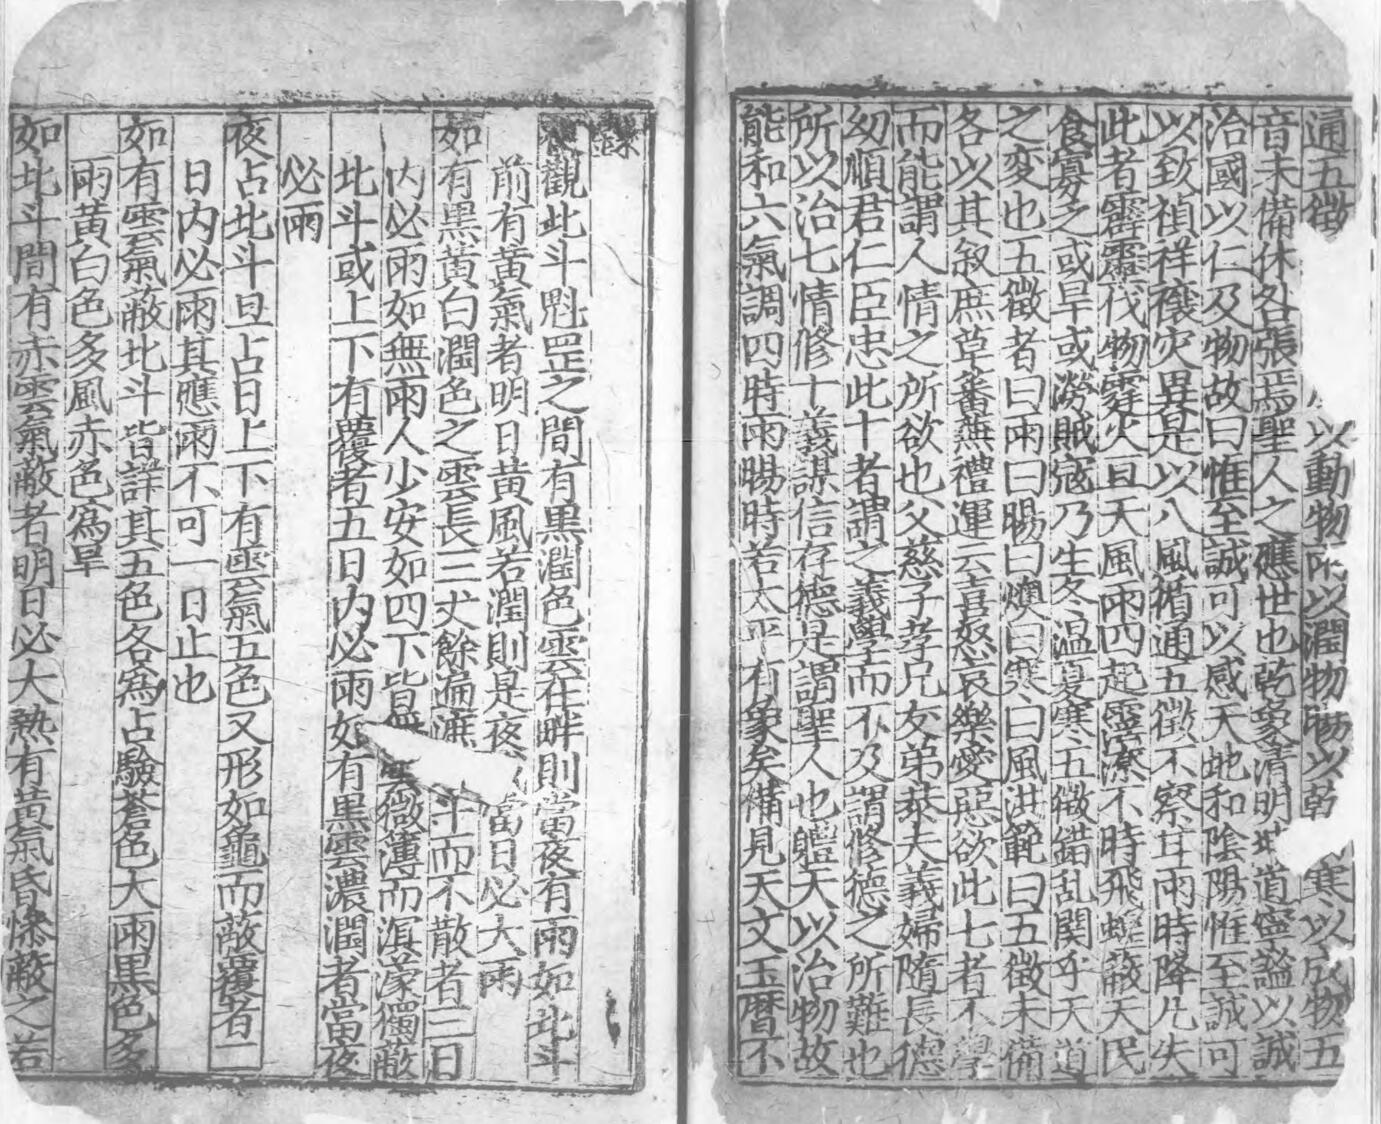 通五徵以動物雨以潤物暘以乾寒以成物五
音未備休咎張焉聖人之應世也乾象清明坤道寧謐以誠
治國以仁及物故曰惟至誠可以感天地和陰陽惟至誠可
以致禎祥禳灾異是以八風循通五徵不察耳雨時降凡失
此者霹靂伐物霆火且天風雨四起霪潦不時飛蝗蔽天民
食寡之或旱或澇賊寇乃生冬温夏寒五徵錯乱関乎天道
之変也五徵者曰雨曰暘曰燠曰寒曰風洪範曰五徵未備
各以其叙庶草蕃蕪禮運云喜怒哀樂愛惡欲此七者不學
而能謂人情之所欲也父慈子孝兄友弟恭夫義婦隨長德
幼順君仁臣忠此十者謂之義學而不及謂修德之所難也
所以治七情修十義謀信存德是謂聖人也體天以治物故
能和六氣調四時雨暘時若太平有象矣備見天文玉曆不
錄
觀北斗魁罡之間有黒潤色雲在畔則當夜有雨如北斗
前有黃氣者明日黃風若潤則是夜當日必大雨
如有黑黃白潤色之雲長三丈餘遍遮斗而不散者三日
内必雨如無雨人少安如四下皆微薄而溟濛獨蔽
北斗或上下有覆者五日内必雨如有黑雲濃潤者當夜
必雨
夜占北斗旦占日上下有雲氣五色又形如龜而蔽覆者二
日内必雨其應雨不可一日止也
如有雲氣蔽北斗皆詳其五色各寫占驗蒼色大雨黒色多
雨黃白色多風赤色寫旱
如北斗間有赤雲氣蔽者明日必大熱有黃氣昏慘蔽之若